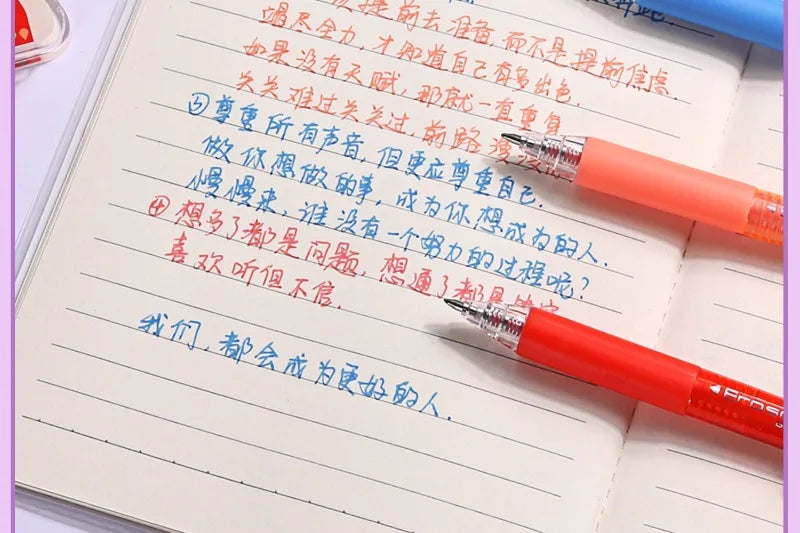 提前去准备,而不是提前焦虑.
竭尽全力,才知道自己有多出色.
如果没有天赋,那就一直重复
关关难过关关过,前路漫
③尊重所有声音,但更应尊重自己.
做你想做的事,成为你想成为的人.
慢慢来,谁没有一个努力的过程呢?
④想多了都是问题,想通了都是
喜欢听但不信.
我们,都会成为更好的人.